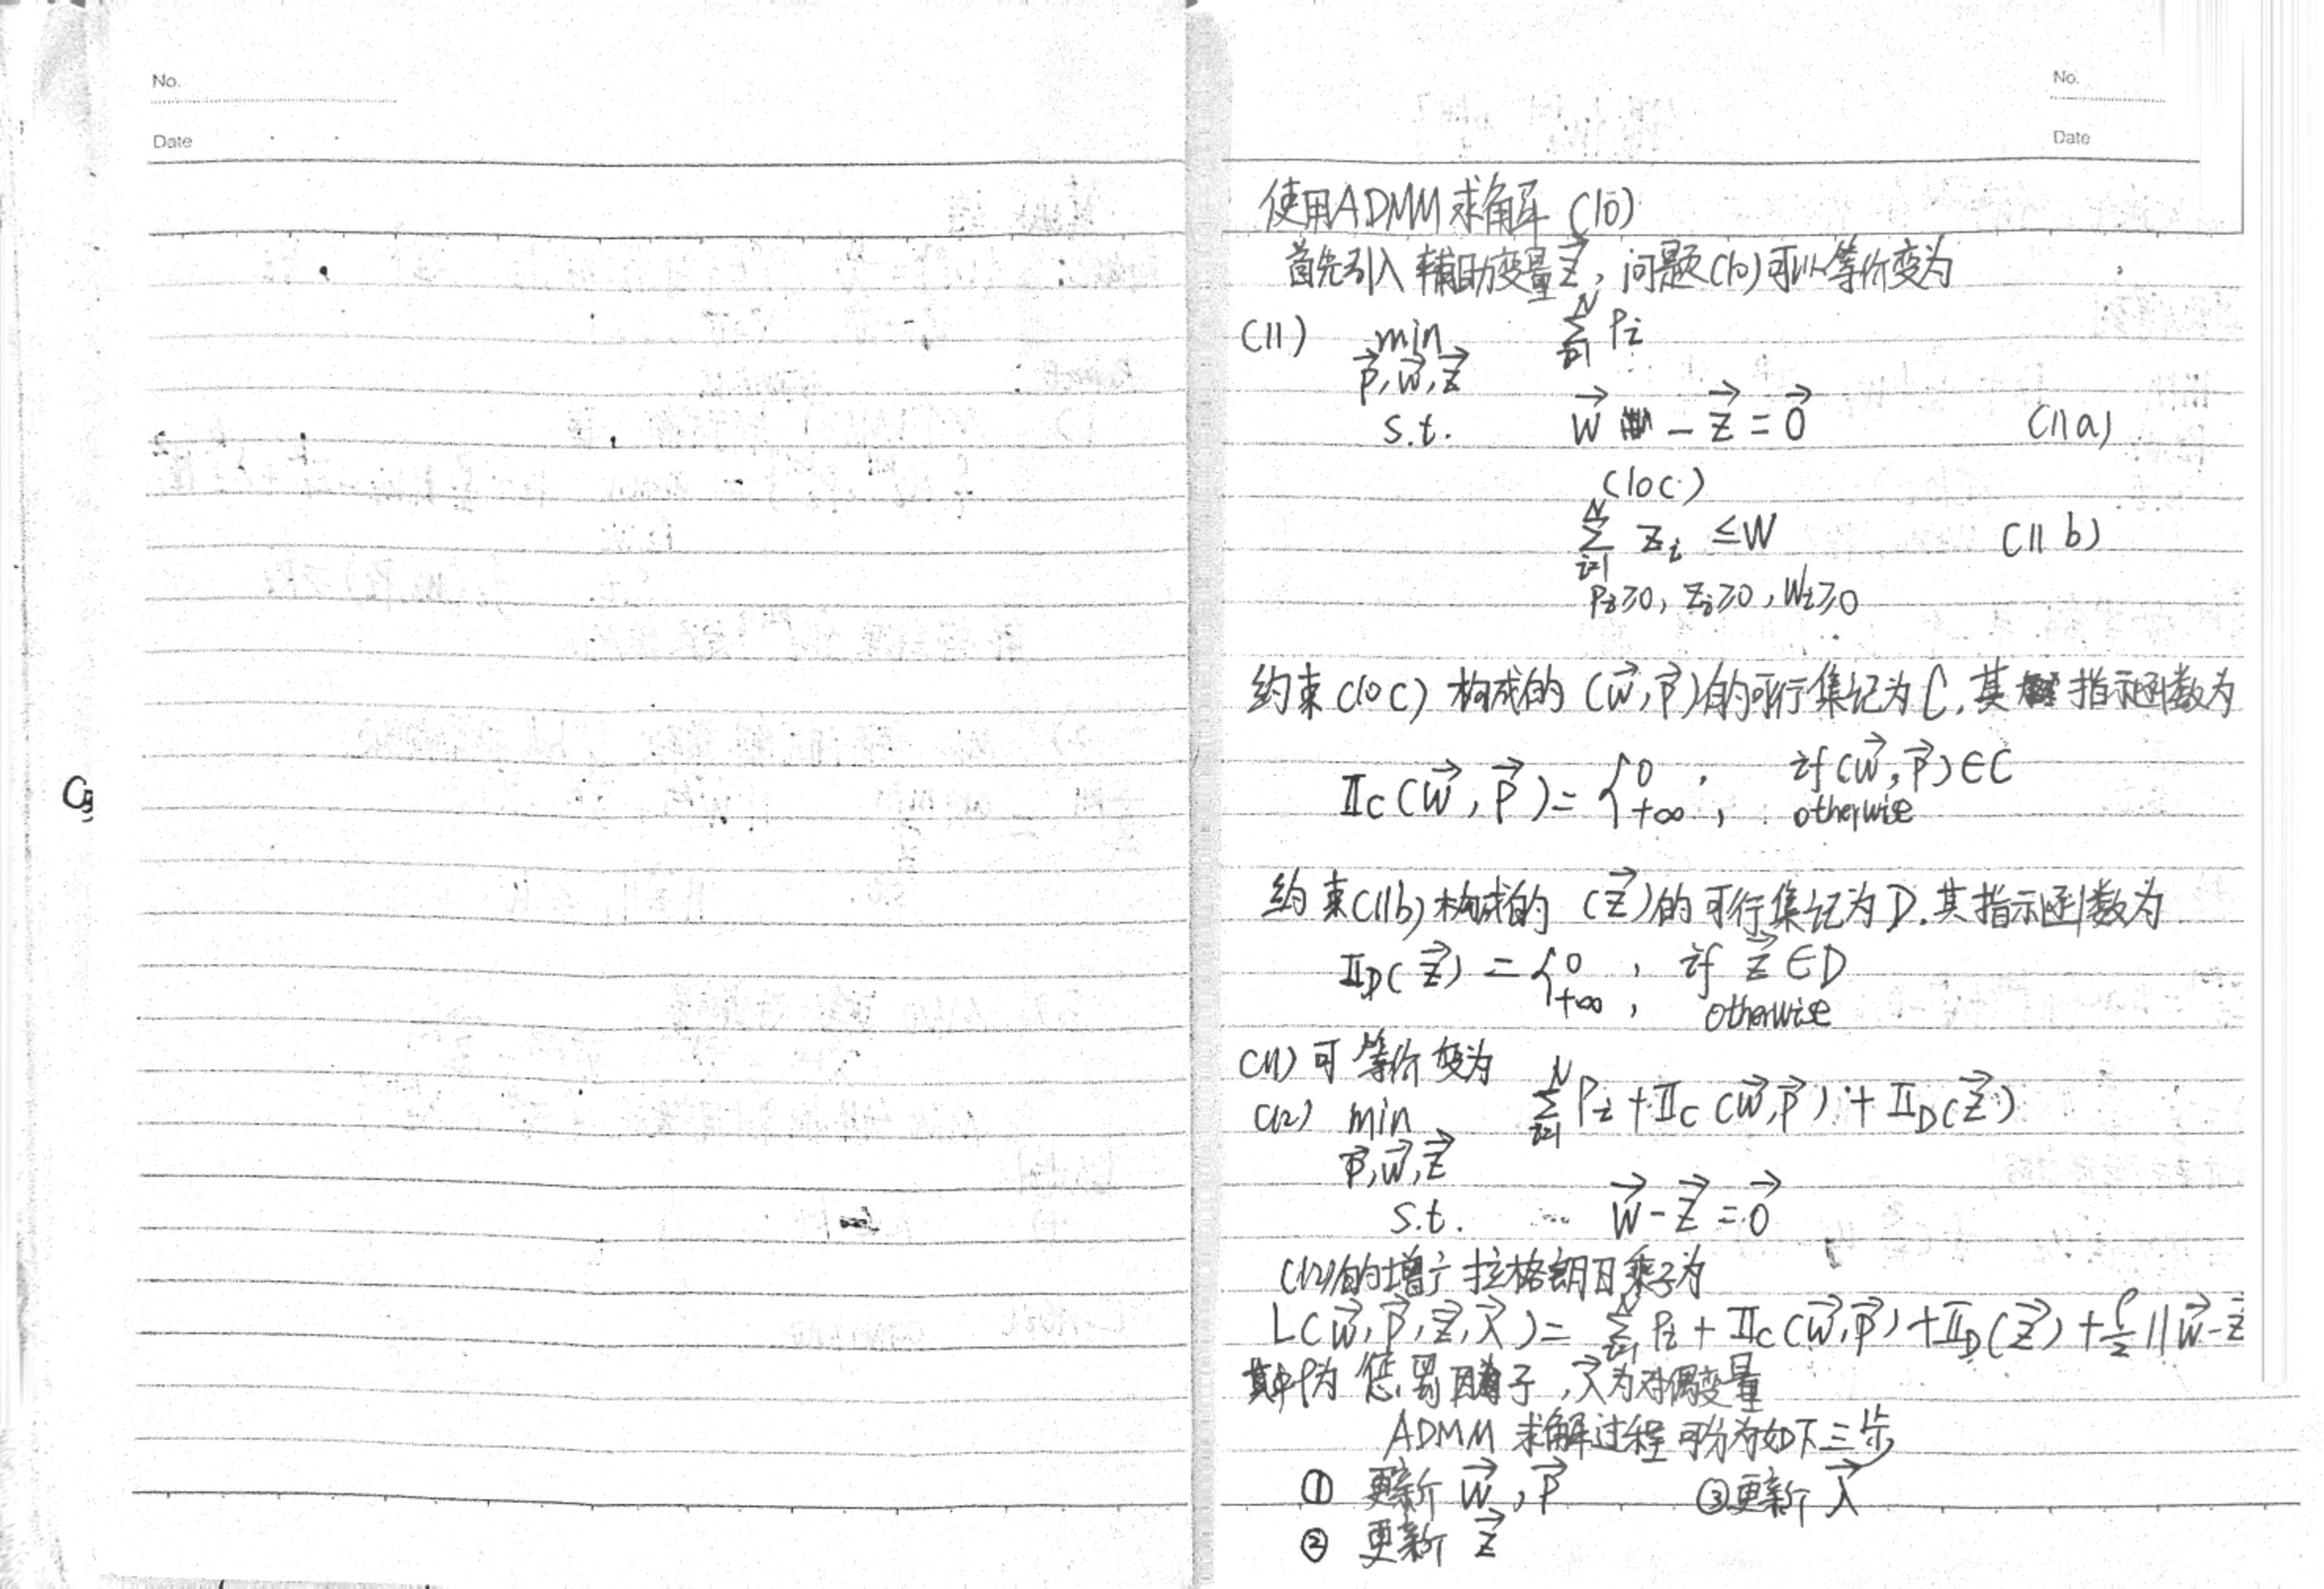 No.
Date
No.
Date
使用ADMM求解 (10)
首先引入辅助变量 \vec{z}, 问题(10)可以等价变为
(11) min \sum_{i=1}^{N} P_i
\vec{p}, \vec{w}, \vec{z}
s.t. \vec{w} - \vec{z} = \vec{0} (11a)
(10c)
\sum_{i=1}^{N} z_i ≤ W (11b)
P_i ≥ 0, z_i ≥ 0, W_i ≥ 0
约束(10c) 构成的 (\vec{w}, \vec{p})的可行集记为C, 其指示函数为
II_C(\vec{w}, \vec{p}) = { 0, if (\vec{w}, \vec{p}) ∈ C
+∞, otherwise
约束(11b)构成的 (\vec{z})的可行集记为D. 其指示函数为
II_D(\vec{z}) = { 0, if \vec{z} ∈ D
+∞, otherwise
(11)可等价变为
(12) min \sum_{i=1}^{N} P_i + II_C(\vec{w}, \vec{p}) + II_D(\vec{z})
\vec{p}, \vec{w}, \vec{z}
s.t. \vec{w} - \vec{z} = \vec{0}
(12)的增广拉格朗日乘子为
L(\vec{w}, \vec{p}, \vec{z}, \vec{λ}) = \sum_{i=1}^{N} P_i + II_C(\vec{w}, \vec{p}) + II_D(\vec{z}) + \frac{ρ}{2} || \vec{w} - \vec{z}
其中ρ为惩罚因子, \vec{λ}为对偶变量
ADMM 求解过程可分为如下三步
① 更新 \vec{w}, \vec{p} ③更新 \vec{λ}
② 更新 \vec{z}